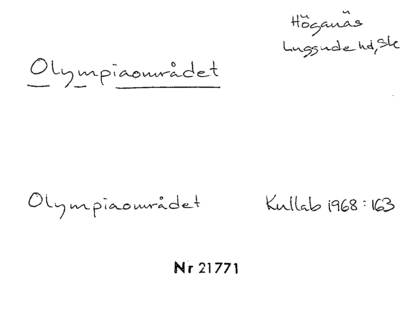 Höganäs
Luggude hd, Sk
Olympiaområdet
Olympiaområdet Kullab 1968:163
Nr 21771